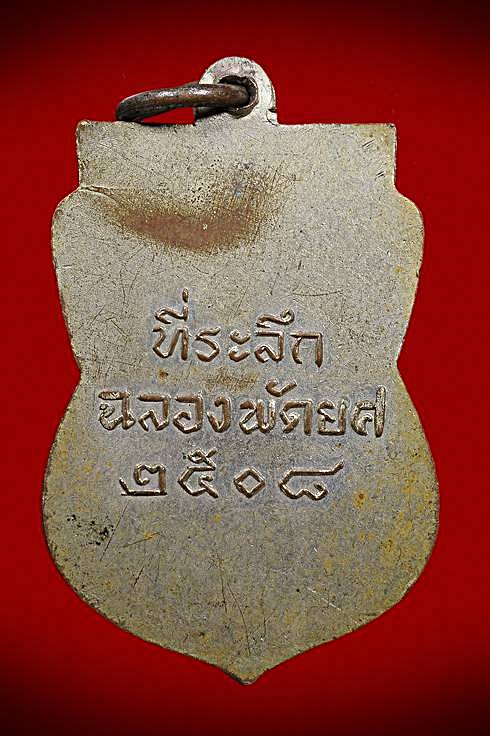 ที่ระลึก
ฉลองพัดยศ
๒๕๐๘